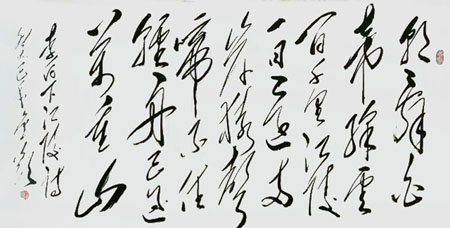 朝辭白
帝綵雲
間千里江陵
一日還兩
岸猿聲
啼不住
輕舟已過
萬重山
李白下江陵詩